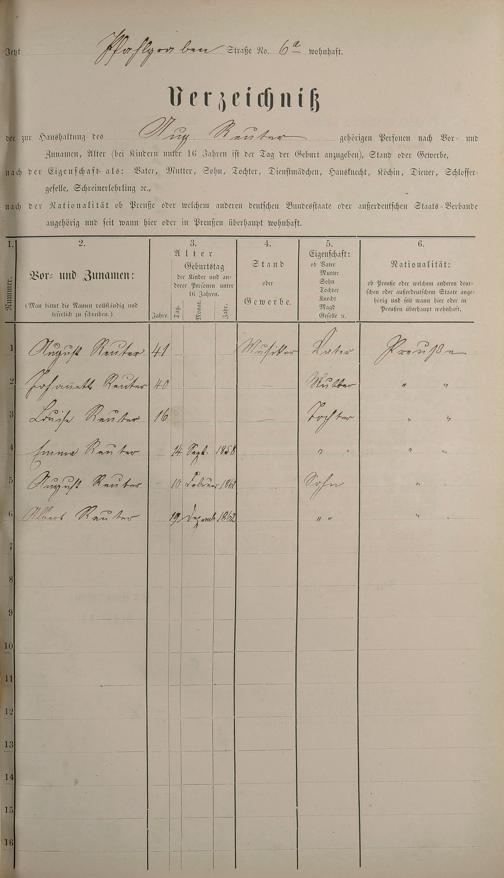 Jetzt Pfahlgraben Straße No. 6a wohnhaft.
Verzeichniß
der zur Haushaltung des Aug Reuter gehörigen Personen nach Vor- und
Zunamen, Alter (bei Kindern unter 16 Jahren ist der Tag der Geburt anzugeben), Stand oder Gewerbe,
nach der Eigenschaft als: Vater, Mutter, Sohn, Tochter, Dienstmädchen, Hausknecht, Köchin, Diener, Schlosser-
geselle, Schreinerlehrling ꝛc.,
nach der Nationalität ob Preuße oder welchem anderen deutschen Bundesstaate oder außerdeutschen Staats-Verbande
angehörig und seit wann hier oder in Preußen überhaupt wohnhaft.
1. 2. 3. 4. 5. 6.
Nummer.
Vor- und Zunamen:
(Man bittet die Namen vollständig und leserlich zu schreiben.)
Alter
Geburtstag
der Kinder und anderer Personen unter 16 Jahren.
Jahre. Tag. Monat. Jahr.
Stand
oder
Gewerbe.
Eigenschaft:
ob Vater
Mutter
Sohn
Tochter
Knecht
Magd
Geselle u.
Nationalität:
ob Preuße oder welchem anderen deutschen oder außerdeutschen Staate angehörig und seit wann hier oder in Preußen überhaupt wohnhaft.
1 August Reuter 41 Musiker Vater Preuße
2 Reuter 40 Mutter " "
3 Louise Reuter 16 Tochter " "
4 Emma Reuter 14 Sept. 1858 " " " "
5 August Reuter 10 Februar Sohn " "
6 Albert Reuter 19 Dezemb 1862 " " " "
7
8
9
10
11
12
13
14
15
16